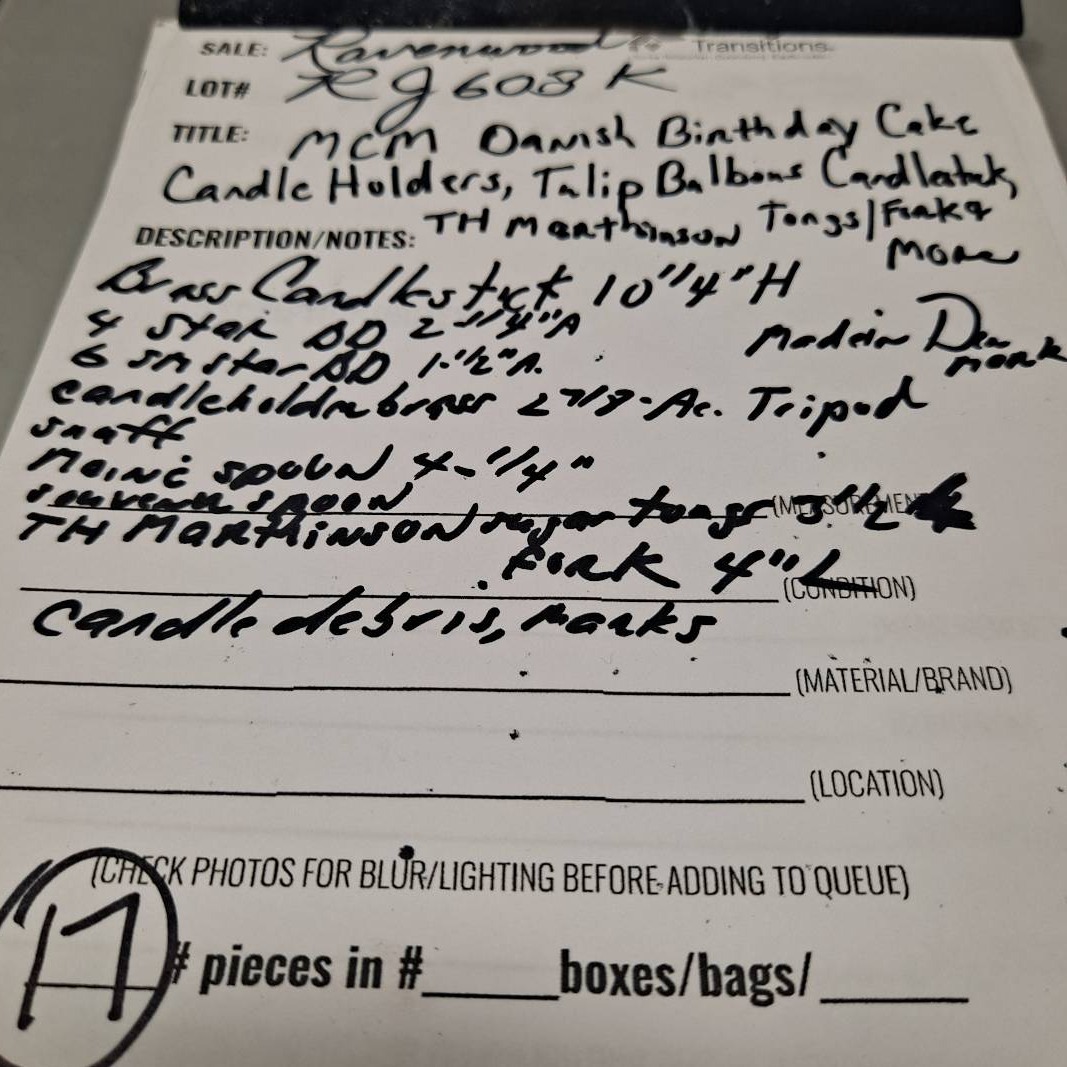 SALE: Ravenwood Transitions
LOT# RJ 608 K
TITLE: MCM Danish Birthday Cake
Candle Holders, Tulip Bulbous Candlestick,
TH Marthinson Tongs/Fork &
More
DESCRIPTION/NOTES:
Brass Candlestick 10"1/4"H
4 Star BD 2-1/4"A
Made in Denmark
6 sm star BD 1-1/2"A.
candleholder brass 2 7/8" Ac. Tripod
snuff
Maine spoon 4-1/4"
souvenir spoon (MEASUREMENT)
TH Marthinson sugar tongs 3 1/2
Fork 4"L (CONDITION)
candle debris, marks
(MATERIAL/BRAND)
(LOCATION)
(CHECK PHOTOS FOR BLUR/LIGHTING BEFORE ADDING TO QUEUE)
17 # pieces in #____ boxes/bags/____